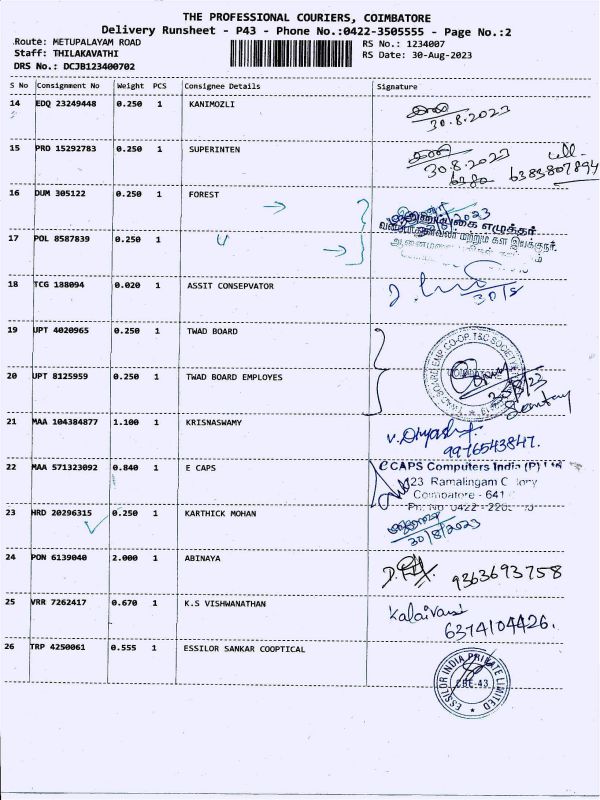 THE PROFESSIONAL COURIERS, COIMBATORE
Delivery Runsheet - P43 - Phone No.:0422-3505555 - Page No.:2
Route: METUPALAYAM ROAD
RS No.: 1234007
Staff: THILAKAVATHI
RS Date: 30-Aug-2023
DRS No.: DCJB123400702
S No Consignment No Weight PCS Consignee Details Signature
14 EDQ 23249448 0.250 1 KANIMOZLI
30.8.2023
15 PRO 15292783 0.250 1 SUPERINTEN
30.8.2023
6383807894
16 DUM 305122 0.250 1 FOREST
17 POL 8587839 0.250 1
18 TCG 188094 0.020 1 ASSIT CONSEPVATOR
30/8
19 UPT 4020965 0.250 1 TWAD BOARD
20 UPT 8125959 0.250 1 TWAD BOARD EMPLOYES
TWAD BOARD EMP. CO-OP. T&C SOCIETY
Secretary
21 MAA 104384877 1.100 1 KRISNASWAMY
V. Divyash
9976543847.
22 MAA 571323092 0.840 1 E CAPS
eCAPS Computers India (P)
23 Ramalingam
Coimbatore - 641
Ph: No 0422 - 220
23 HRD 20296315 0.250 1 KARTHICK MOHAN
30/8/2023
24 PON 6139040 2.000 1 ABINAYA
9363693758
25 VRR 7262417 0.670 1 K.S VISHWANATHAN
Kalaivani
6374104426.
26 TRP 4250061 0.555 1 ESSILOR SANKAR COOPTICAL
ESSILOR INDIA PRIVATE LIMITED
CBE-43